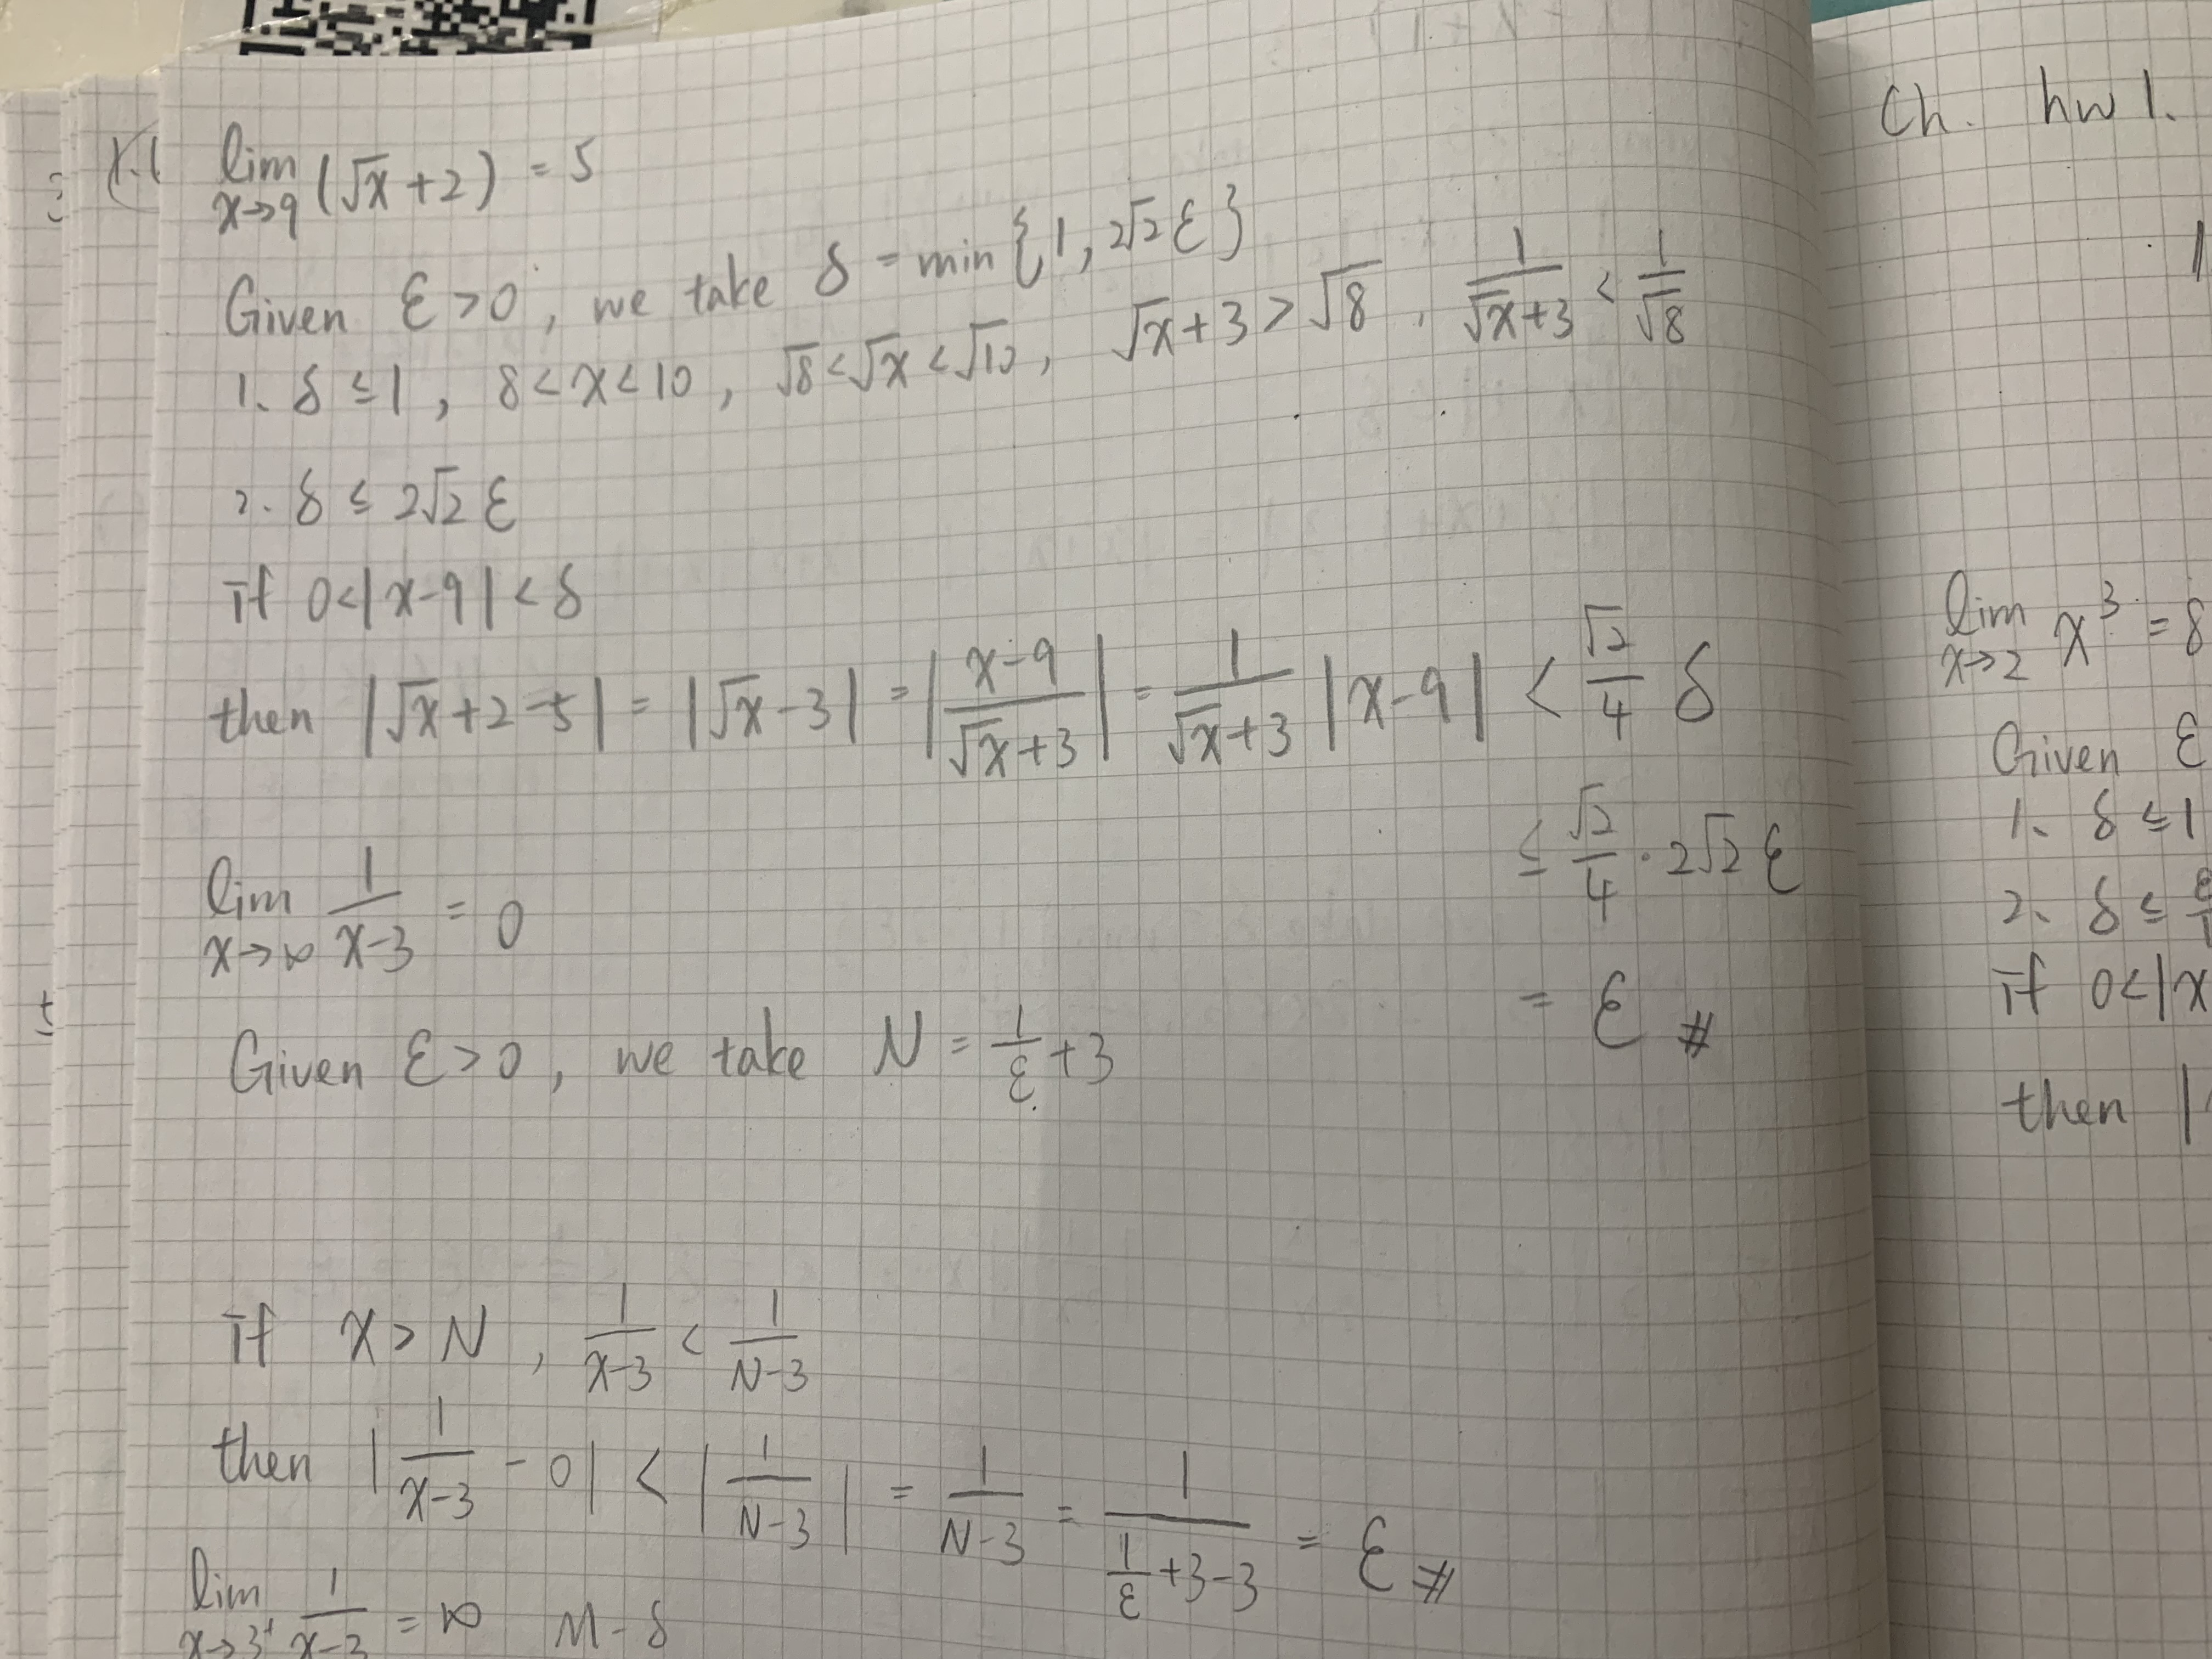 lim x→9 (√x + 2) = 5
Given ε > 0, we take δ = min {1, 2√2 ε}
1. δ ≤ 1, 8 < x < 10, √8 < √x < √10, √x + 3 > √8, 1/(√x + 3) < 1/√8
2. δ ≤ 2√2 ε
If 0 < |x - 9| < δ
then |√x + 2 - 5| = |√x - 3| = |(x - 9)/(√x + 3)| = 1/(√x + 3) |x - 9| < √2/4 δ
≤ √2/4 · 2√2 ε
= ε #
lim x→∞ 1/(x - 3) = 0
Given ε > 0, we take N = 1/ε + 3
If x > N, 1/(x - 3) < 1/(N - 3)
then |1/(x - 3) - 0| < |1/(N - 3)| = 1/(N - 3) = 1/(1/ε + 3 - 3) = ε #
lim x→3⁺ 1/(x - 3) = ∞ M - δ
Ch. hw 1.
lim x→2 x³ = 8
Given ε
1. δ ≤ 1
2. δ ≤
If 0 < |x
then |